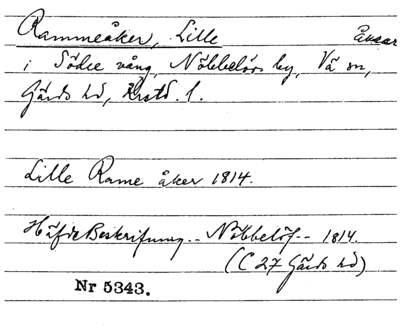 Rammeåker, Lille Åkrar
i Södre vång, Nöbbelövs by, Vä sn,
Gärds hd, Krstd. l.
Lille Rame åker 1814.
Häfde Beskrifning -- Nöbbelöf -- 1814.
(C 27 Gärds hd)
Nr 5343.